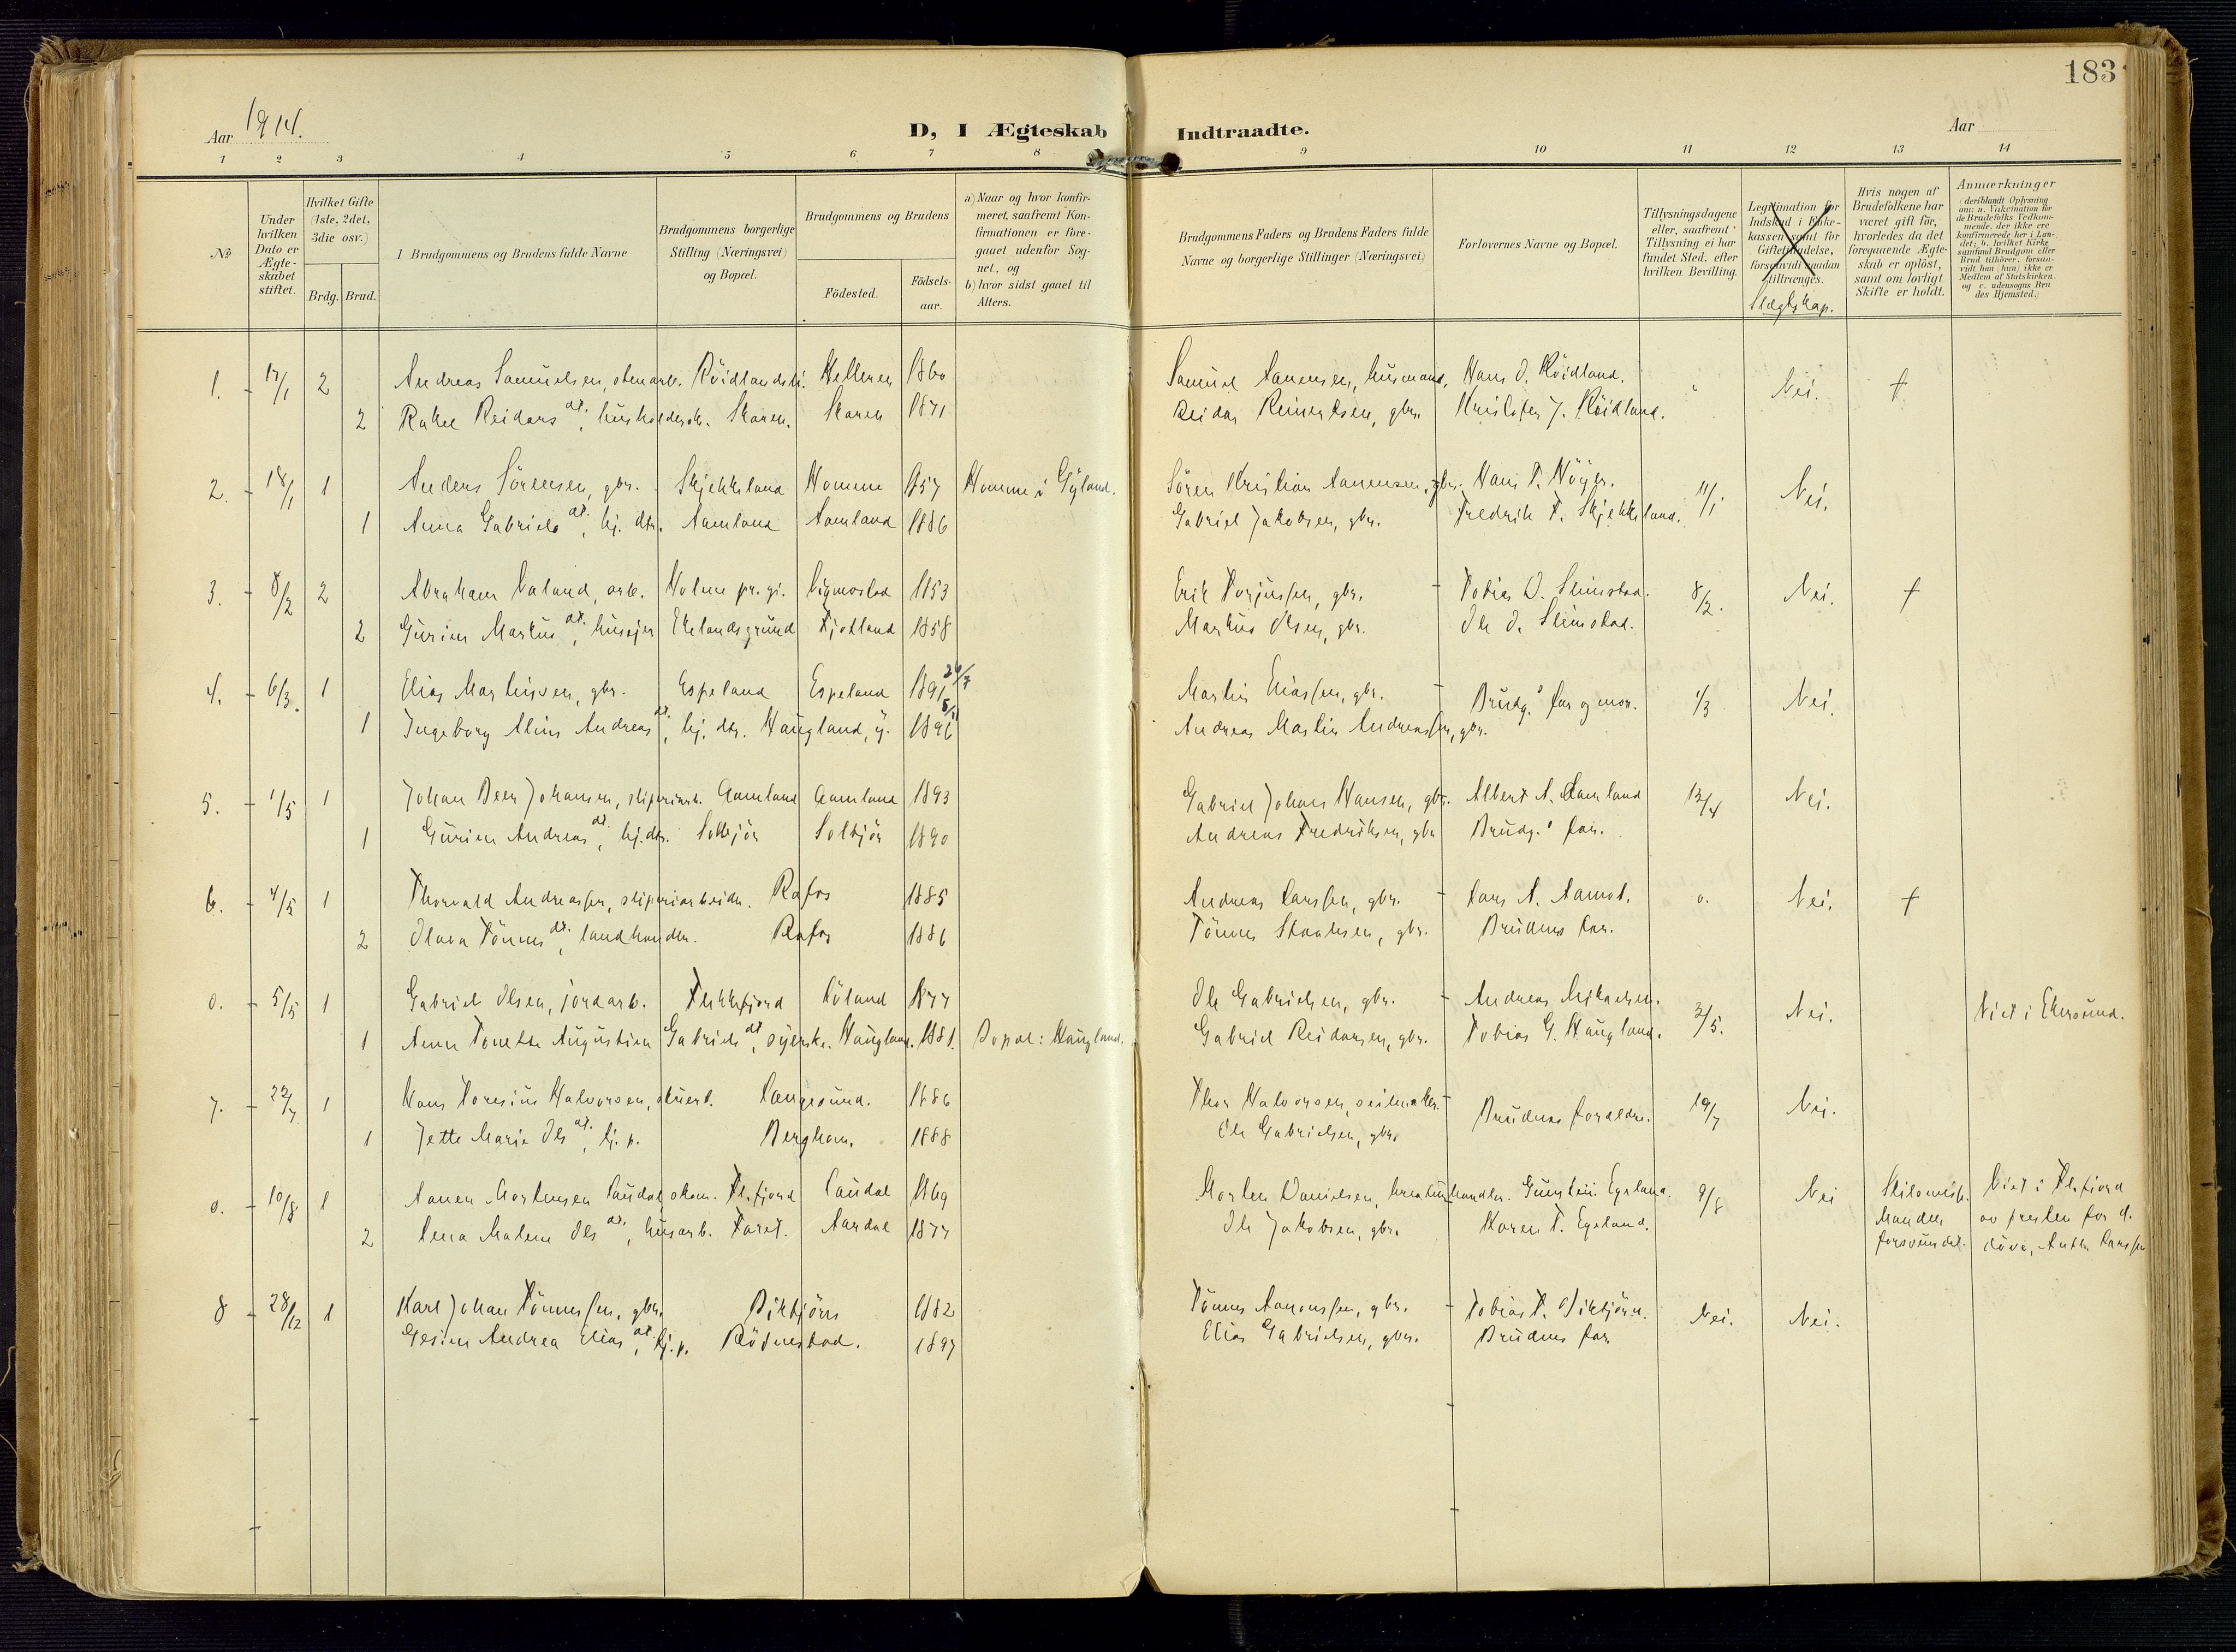 183
Aar 1914.
D, I Ægteskab Indtraadte.
Aar
1 2 3 4 5 6 7 8 9 10 11 12 13 14
№
Under hvilken Dato er Ægteskabet stiftet.
Hvilket Gifte (1ste, 2det, 3die osv.)
Brdg. Brud.
Brudgommens og Brudens fulde Navne
Brudgommens borgerlige Stilling (Næringsvei) og Bopæl.
Brudgommens og Brudens
Födested.
Födselsaar.
a) Naar og hvor konfirmeret, saafremt Konfirmationen er foregaaet udenfor Sognet, og
b) hvor sidst gaaet til Alters.
Brudgommens Faders og Brudens Faders fulde Navne og borgerlige Stillinger (Næringsvei)
Forlovernes Navne og Bopæl.
Tillysningsdagene eller, saafremt Tillysning ei har fundet Sted, efter hvilken Bevilling.
Legitimation for Indskud i Enkekassen samt for Giftetilladelse, forsaavidt saadan tiltrænges.
Slægtskap.
Hvis nogen af Brudefolkene har været gift för, hvorledes da det foregaaende Ægteskab er oplöst, samt om lovligt Skifte er holdt.
Anmærkninger (deriblandt Oplysning om: a. Vakcination for de Brudefolks Vedkommende, der ikke ere konfirmerede her i Landet; b. hvilket Kirkesamfund Brudgom eller Brud tilhörer, forsaavidt han (hun) ikke er Medlem af Statskirken, og c. udensogns Brudes Hjemsted.)
1. 17/1 2 Andreas Samuelsen, stenarb. Röidlandsh. Helleren 1860 Samuel Aanensen, husmand, Hans O. Röidland. Nei. †
2 Rakel Reidarsdt., husholdersk. Skaren. Skaren 1871 Reidar Reinertsen, gbr. Kristofer J. Röidland.
2. 18/1 1 Anders Sörensen, gbr. Skjekkeland Homme 1857 Homme i Gyland. Sören Kristian Aanensen, gbr. Hans T. Högi. 11/1 Nei.
1 Anna Gabrielsdt., hj. dtr. Aamland Aamland 1886 Gabriel Jakobsen, gbr. Fredrik T. Skjekkeland.
3. 8/2 2 Abraham Valand, arb. Holum pr.gj. Bigmostad 1853 Erik Torjussen, gbr. Tobias O. Slimstad. 8/2. Nei. †
2 Gurine Markusdt., husejer Ekelandsgrund Fjotland 1858 Markus Olsen, gbr. Ole O. Slimstad.
4. 6/3. 1 Elias Martinsen, gbr. Espeland Espeland 1891 26/7 Martin Eliassen, gbr. Brudg.s far og mor. 1/3 Nei.
1 Ingeborg Aline Andreasdt., hj. dtr. Haugland, y. 1896 Andreas Martin Andreassen, gbr.
5. 1/5 1 Johan Beer Johansen, sliperiarb. Aamland Aamland 1893 Gabriel Johan Hansen, gbr. Albert A. Aamland 12/4 Nei.
1 Gurine Andreasdt., hj.dtr. Solbjör Solbjör 1890 Andreas Fredriksen, gbr Brudg.s far.
6. 4/5 1 Thorvald Andreassen, sliperiarbeider. Rafos 1885 Andreas Larssen, gbr. Lars A. Aamot. o. Nei. †
2 Olava Tönnesdt., landhandler. Rafos 1886 Tönnes Staalesen, gbr. Brudens far.
o. 5/5 1 Gabriel Olsen, jordarb. Flekkefjord Höland 1877 Ole Gabrielsen, gbr. Andreas Mikaelsen. 3/5. Nei. Viet i Ekersund.
1 Anne Tonette Augustine Gabrielsdt., syerske. Haugland. 1881. Bopæl: Haugland. Gabriel Reidarsen, gbr. Tobias G. Haugland.
7. 22/7 1 Hans Toresius Halvorsen, stuert. Langesund. 1886 Thor Halvorsen, seilmaker. Brudens forældre. 19/7 Nei.
1 Jette Marie Olsdt., hj. p. Bergham. 1888 Ole Gabrielsen, gbr.
o. 10/8 1 Aanen Mortensen Laudal, skom. Fl.fjord Laudal 1869 Morten Danielsen, kreaturhandler. Gunstein Egeland. 9/8 Nei Skilsmisse. Viet i Fl.fjord
2 Lena Malene Olsdt., husarb. Faret. Aardal 1877 Ole Jakobsen, gbr. Karen T. Egeland. Manden forsvundet. av presten for d. döve,
8 28/12 1 Karl Johan Tönnessen, gbr. Birkjörn 1882 Tönnes Aanonssen, gbr. Tobias T. Nei. Nei.
Gesine Andrea Eliasdt., hj. p. Rödnestad. 1897 Elias Gabrielsen, gbr. Brudens far